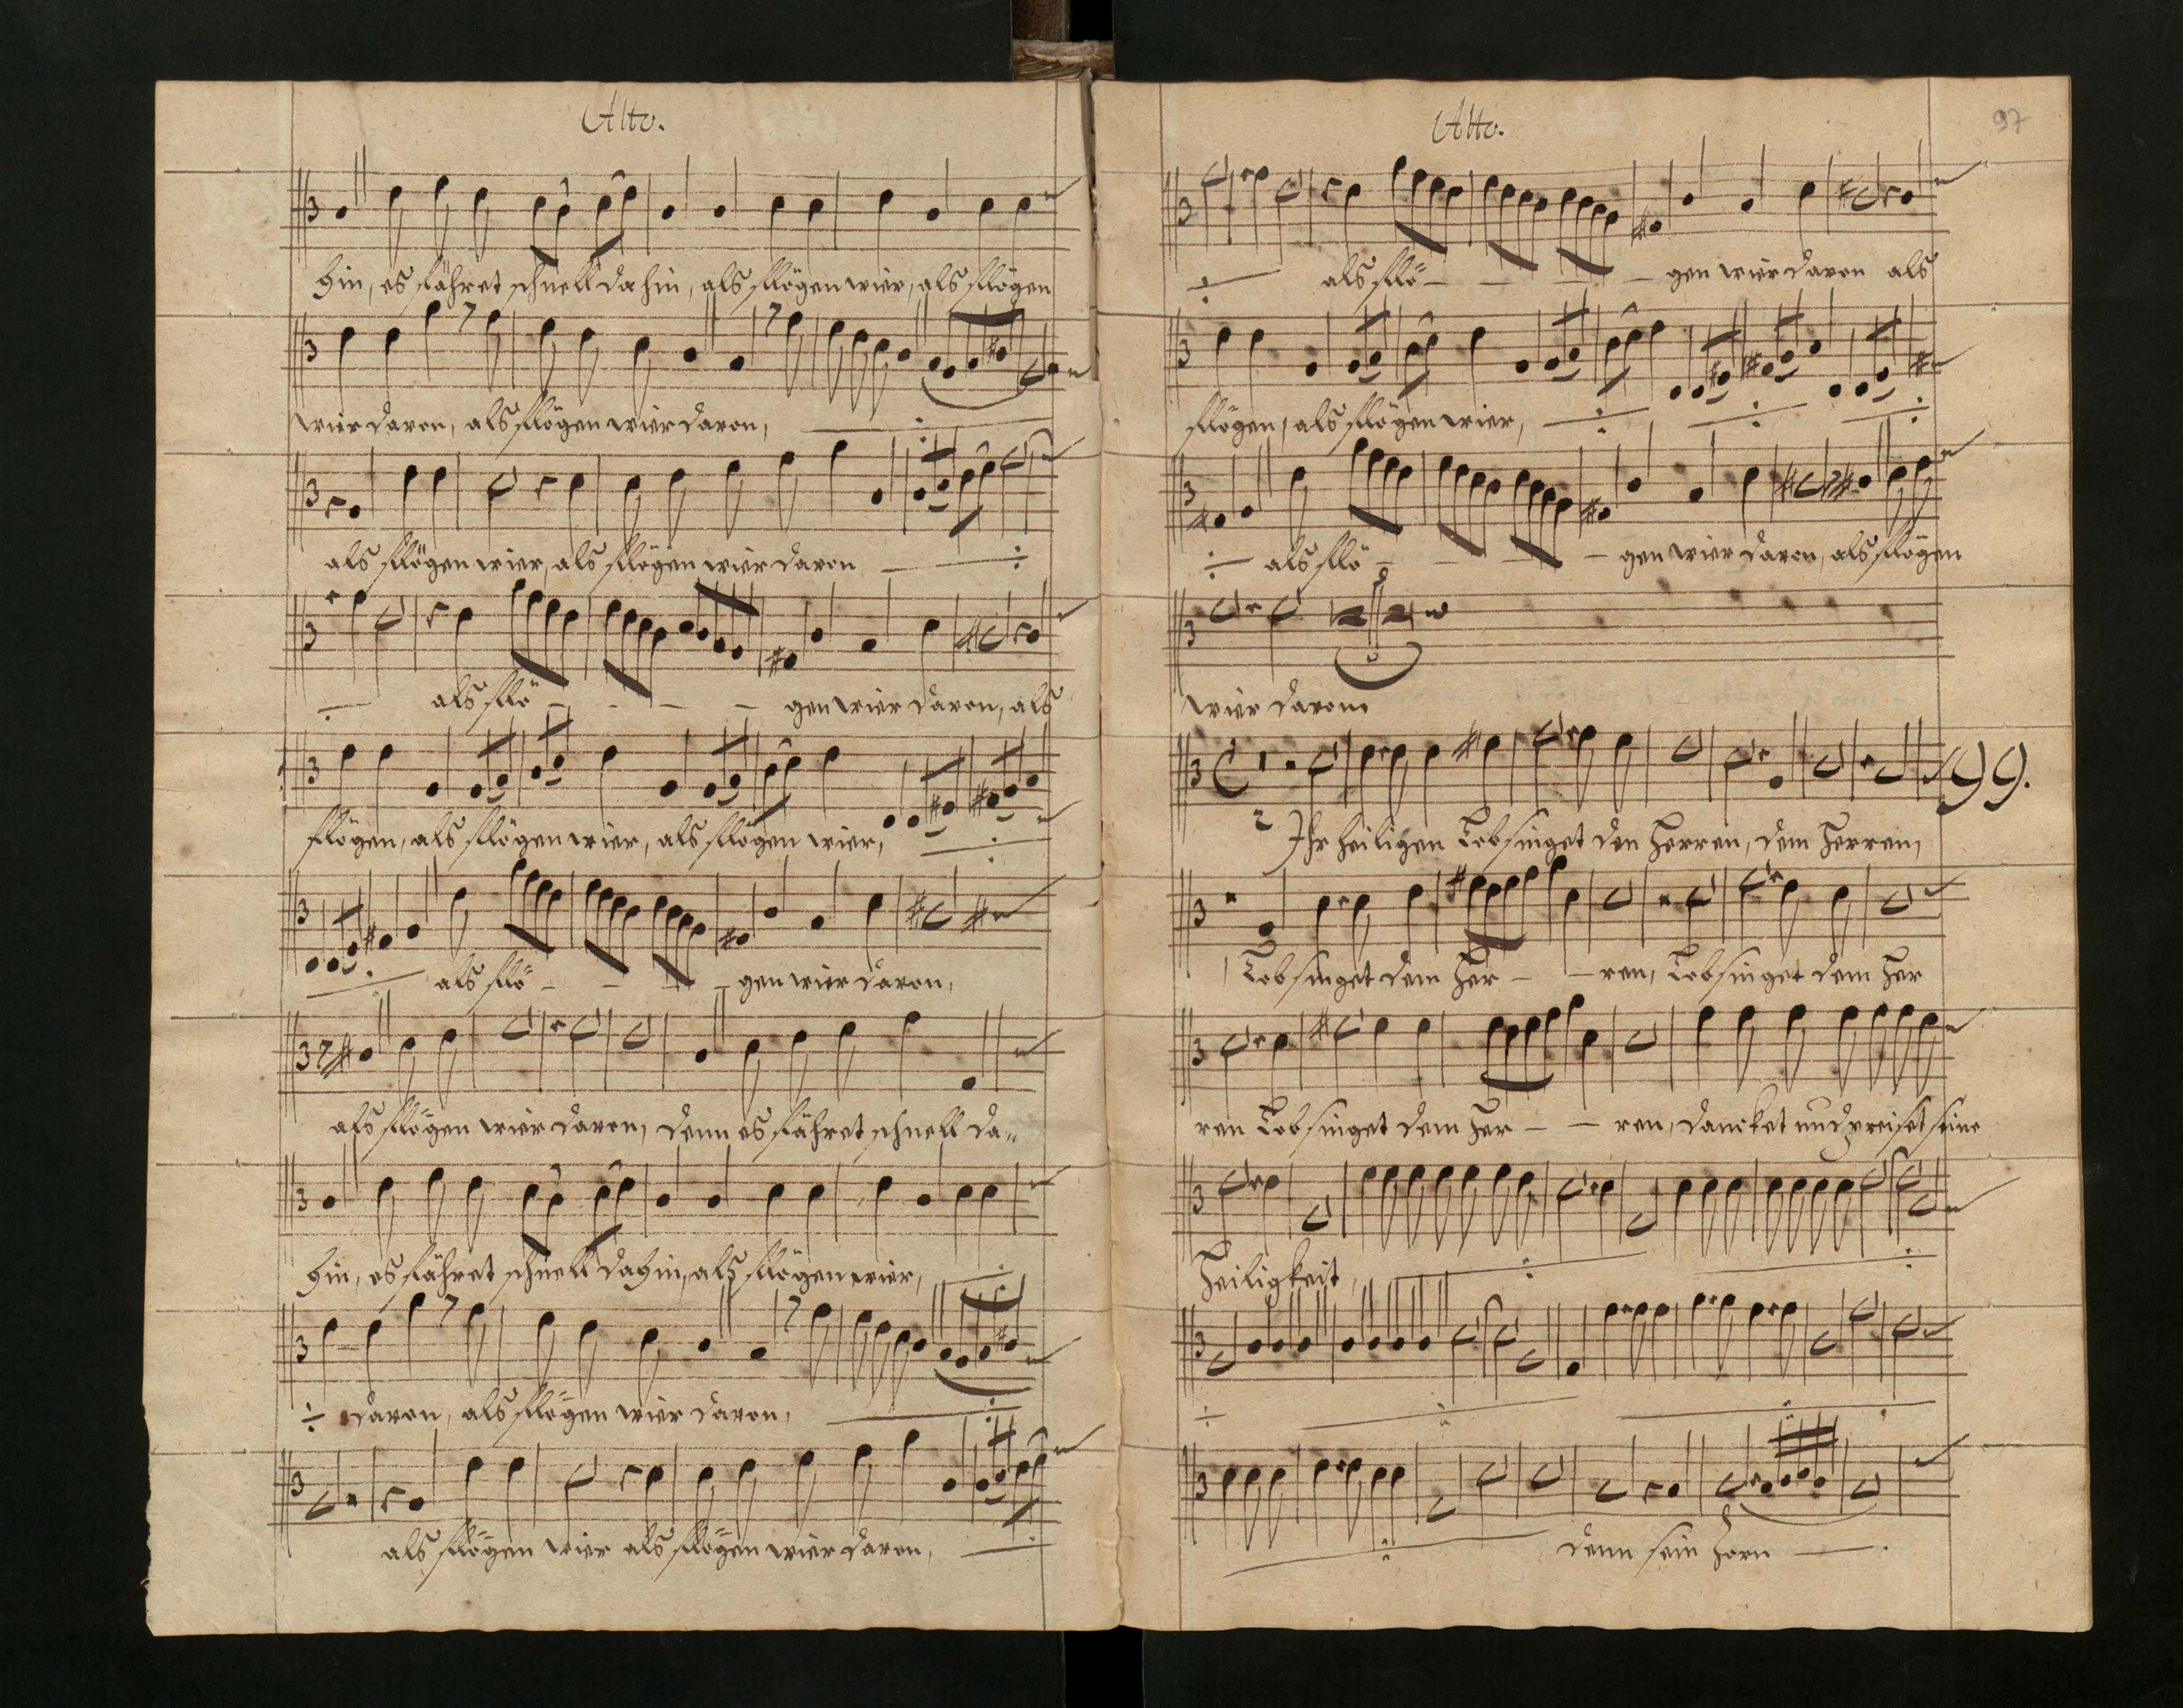 Alto.
hin, es fähret schnell dahin, als flögen wier, als flögen
wier davon, als flögen wier davon,
als flögen wier, als flögen wier davon
als flö - - - - gen wier davon, als
flögen, als flögen wier, als flögen wier,
als flö - - - - gen wier davon,
als flögen wier davon, denn es fähret schnell da=
hin, es fähret schnell dahin, als flögen wier,
davon, als flögen wier davon,
als flögen wier als flögen wier davon,
Alto.
97
als flö - - - - gen wier davon als
flögen, als flögen wier,
als flö - - - - gen wier davon, als flögen
wier davon.
99.
Ihr heiligen Lobsinget den Herren, dem Herren,
Lobsinget dem Her - - ren, Lobsinget dem Her
ren Lobsinget dem Her - - ren, dancket und preiset seine
Heiligkeit,
denn sein Zorn